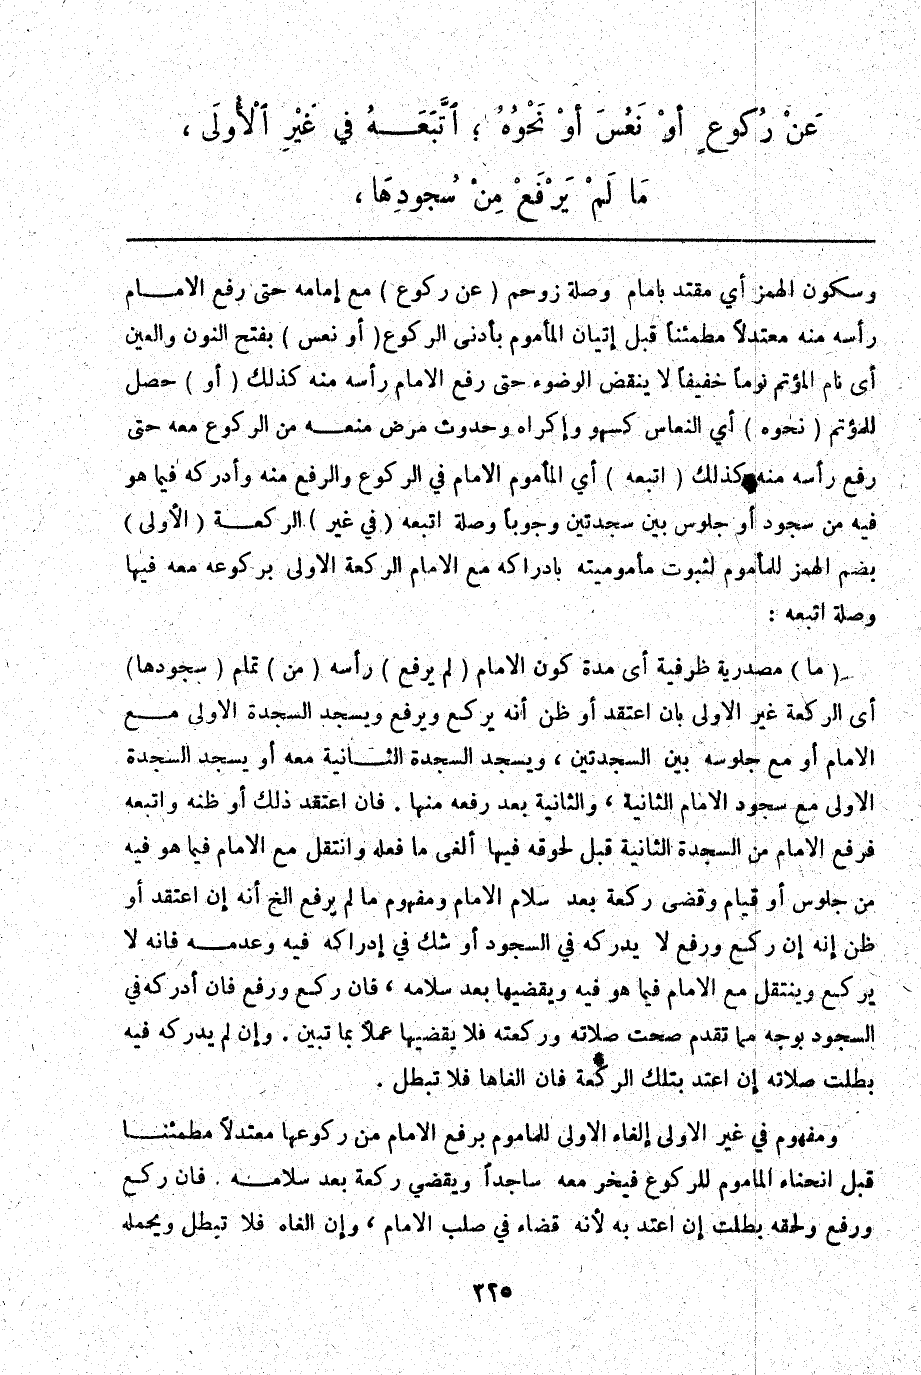 عَنْ رُكوعٍ أوْ نَعُسَ أوْ نَحْوُهُ ؛ ٱتَّبَعَـــهُ في غَيْرِ ٱلْأُولَى ،
مَا لَمْ يَرْفَعْ مِنْ سُجودِهَا ،
وسكون الهمز أي مقتد بامام وصلة زوحم ( عن ركوع ) مع إمامه حتى رفع الامـــام
رأسه منه معتدلاً مطمئناً قبل إتيان المأموم بأدنى الركوع ( أو نعس ) بفتح النون والعين
أى نام المؤتم نوماً خفيفاً لا ينقض الوضوء حتى رفع الامام رأسه منه كذلك ( أو ) حصل
للمؤتم ( نحوه ) أي النعاس كسهو وإكراه وحدوث مرض منعـــه من الركوع معه حتى
رفع رأسه منه كذلك ( اتبعه ) أي المأموم الامام في الركوع والرفع منه وأدركه فيما هو
فيه من سجود أو جلوس بين سجدتين وجوباً وصلة اتبعه ( في غير ) الركعـــة ( الأولى )
بضم الهمز للمأموم لثبوت مأموميته بادراكه مع الامام الركعة الاولى بركوعه معه فيها
وصلة اتبعه :
( ما ) مصدرية ظرفية أى مدة كون الامام ( لم يرفع ) رأسه ( من ) تمام ( سجودها )
أى الركعة غير الاولى بان اعتقد أو ظن أنه يركع ويرفع ويسجد السجدة الاولى مـــع
الامام أو مع جلوسه بين السجدتين ، ويسجد السجدة الثـــانية معه أو يسجد السجدة
الاولى مع سجود الامام الثانية ، والثانية بعد رفعه منها . فان اعتقد ذلك أو ظنه واتبعه
فرفع الامام من السجدة الثانية قبل لحوقه فيها ألغى ما فعله وانتقل مع الامام فيما هو فيه
من جلوس أو قيام وقضى ركعة بعد سلام الامام ومفهوم ما لم يرفع الخ أنه إن اعتقد أو
ظن إنه إن ركع ورفع لا يدركه في السجود أو شك في إدراكه فيه وعدمـــه فانه لا
يركع وينتقل مع الامام فيما هو فيه ويقضيها بعد سلامه ، فان ركع ورفع فان أدركه في
السجود بوجه مما تقدم صحت صلاته وركعته فلا يقضيها عملاً بما تبين . وإن لم يدركه فيه
بطلت صلاته إن اعتد بتلك الركعة فان الغاها فلا تبطل .
ومفهوم في غير الاولى إلغاء الاولى للماموم برفع الامام من ركوعها معتدلاً مطمئنـــا
قبل انحناء الماموم للركوع فيخر معه ساجداً ويقضي ركعة بعد سلامـــه . فان ركع
ورفع ولحقه بطلت إن اعتد به لأنه قضاء في صلب الامام ، وإن الغاه فلا تبطل ويحمله
٣٢٥